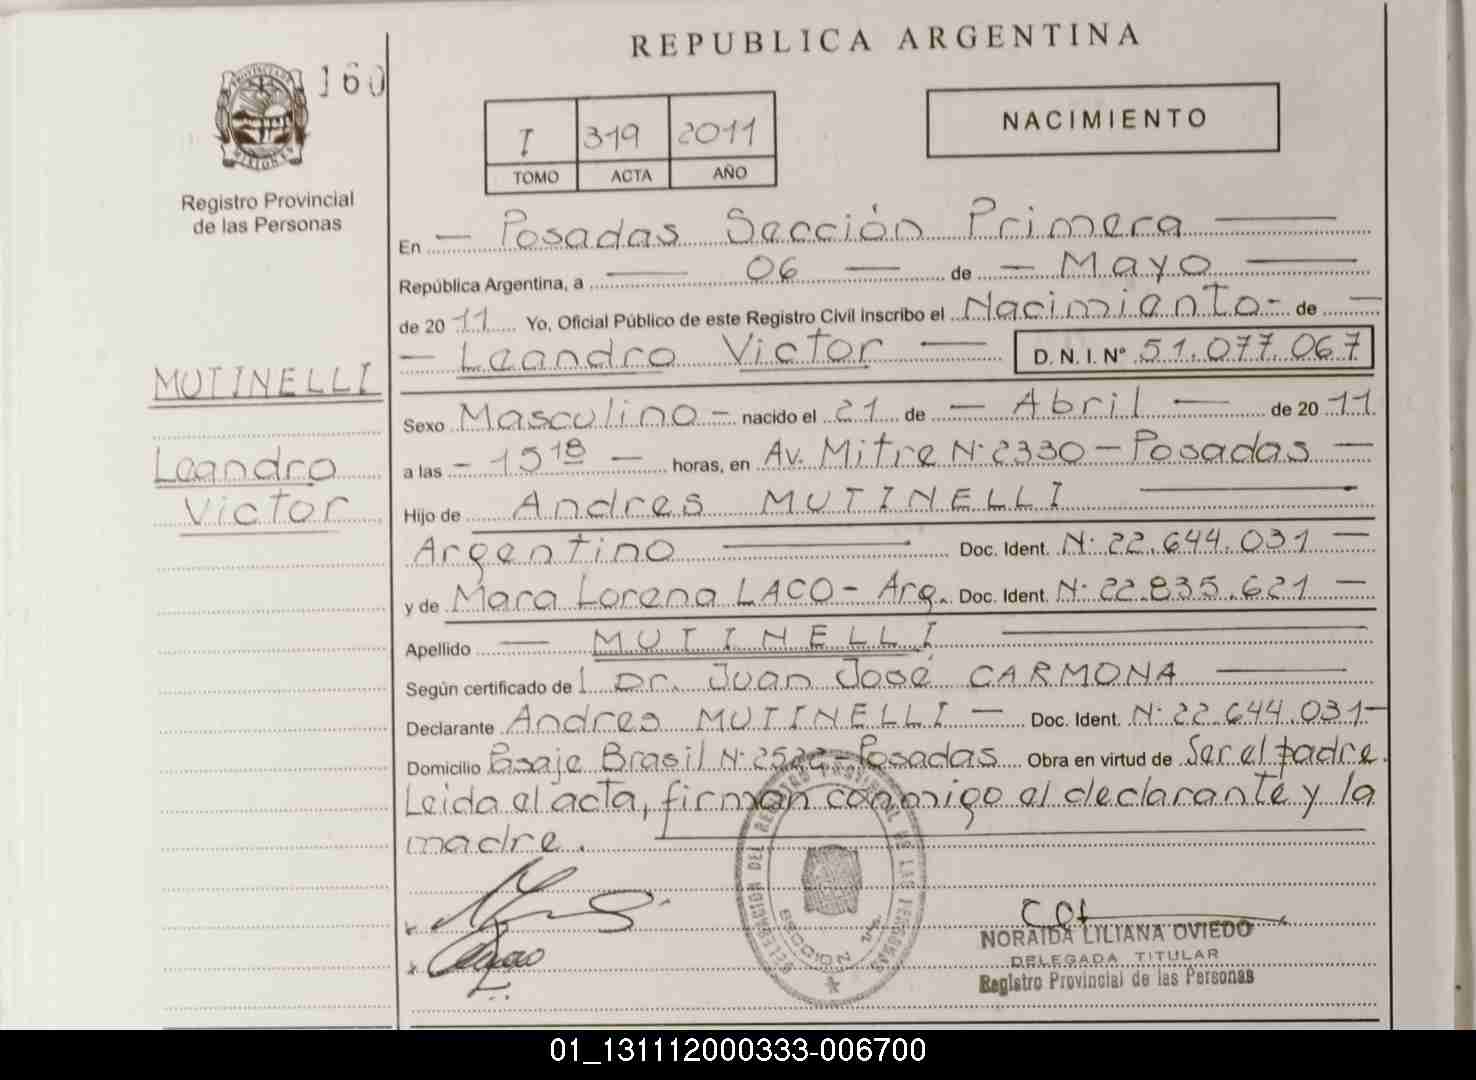 REPUBLICA ARGENTINA
160
I 319 2011
TOMO ACTA AÑO
NACIMIENTO
Registro Provincial
de las Personas
En — Posadas Sección Primera —
República Argentina, a — 06 — de — Mayo —
de 2011 Yo, Oficial Público de este Registro Civil inscribo el Nacimiento - de —
— Leandro Victor — D. N. I. Nº 51.077.067
MUTINELLI
Leandro
Victor
Sexo Masculino - nacido el 21 de — Abril — de 2011
a las - 15 18 — horas, en Av. Mitre Nº 2330 - Posadas —
Hijo de Andres MUTINELLI —
Argentino — Doc. Ident. Nº 22.644.031 —
y de Mara Lorena LACO - Arg. Doc. Ident. Nº 22.835.621 —
Apellido — MUTINELLI —
Según certificado de l Dr. Juan José CARMONA —
Declarante Andres MUTINELLI — Doc. Ident. Nº 22.644.031 -
Domicilio Pasaje Brasil Nº - Posadas Obra en virtud de Ser el padre.
Leida el acta, firman conmigo el declarante y la
madre.
DELEGACION DEL REGISTRO PROVINCIAL DE LAS PERSONAS
SECCION 1ª
NORAIDA LILIANA OVIEDO
DELEGADA TITULAR
Registro Provincial de las Personas
01_131112000333-006700